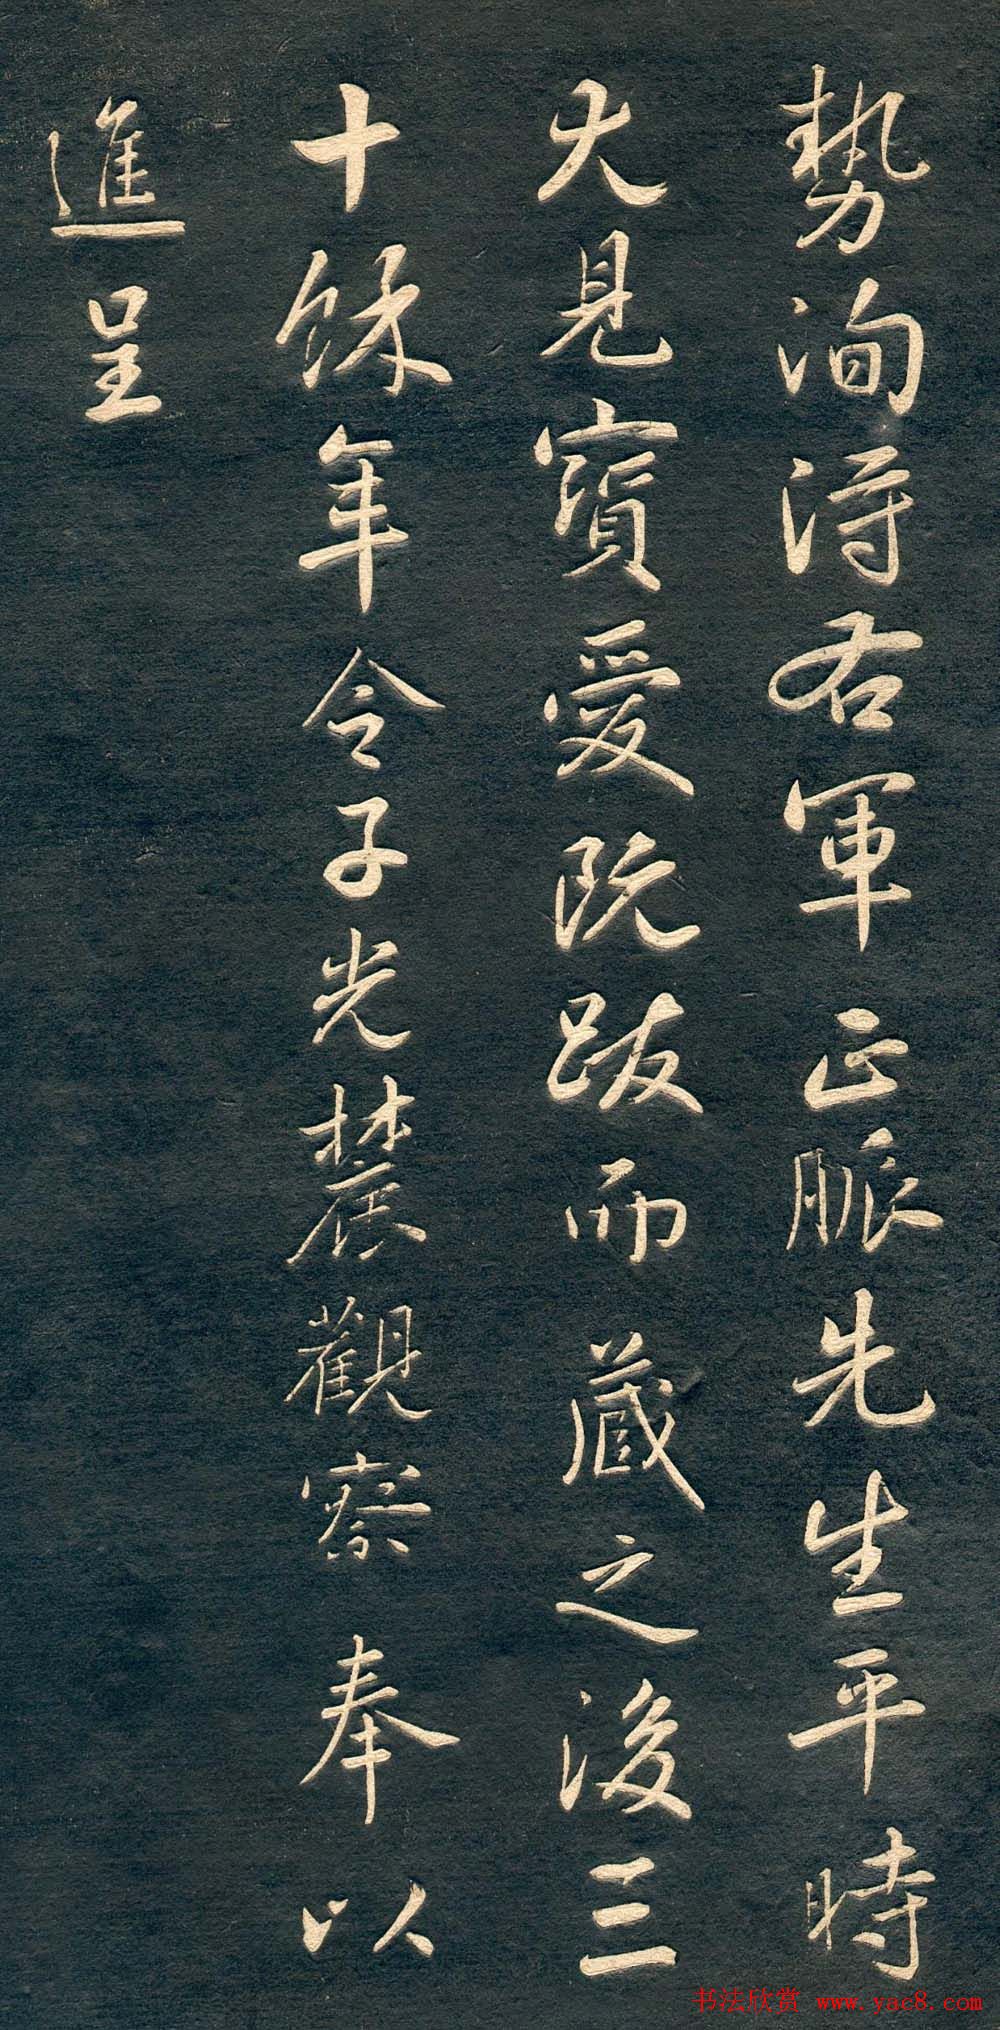 勢洵得右軍正脈先生平時
大見寶愛既跋而藏之後三
十餘年令子光農觀察奉以
進呈
书法欣赏 www.yac8.com